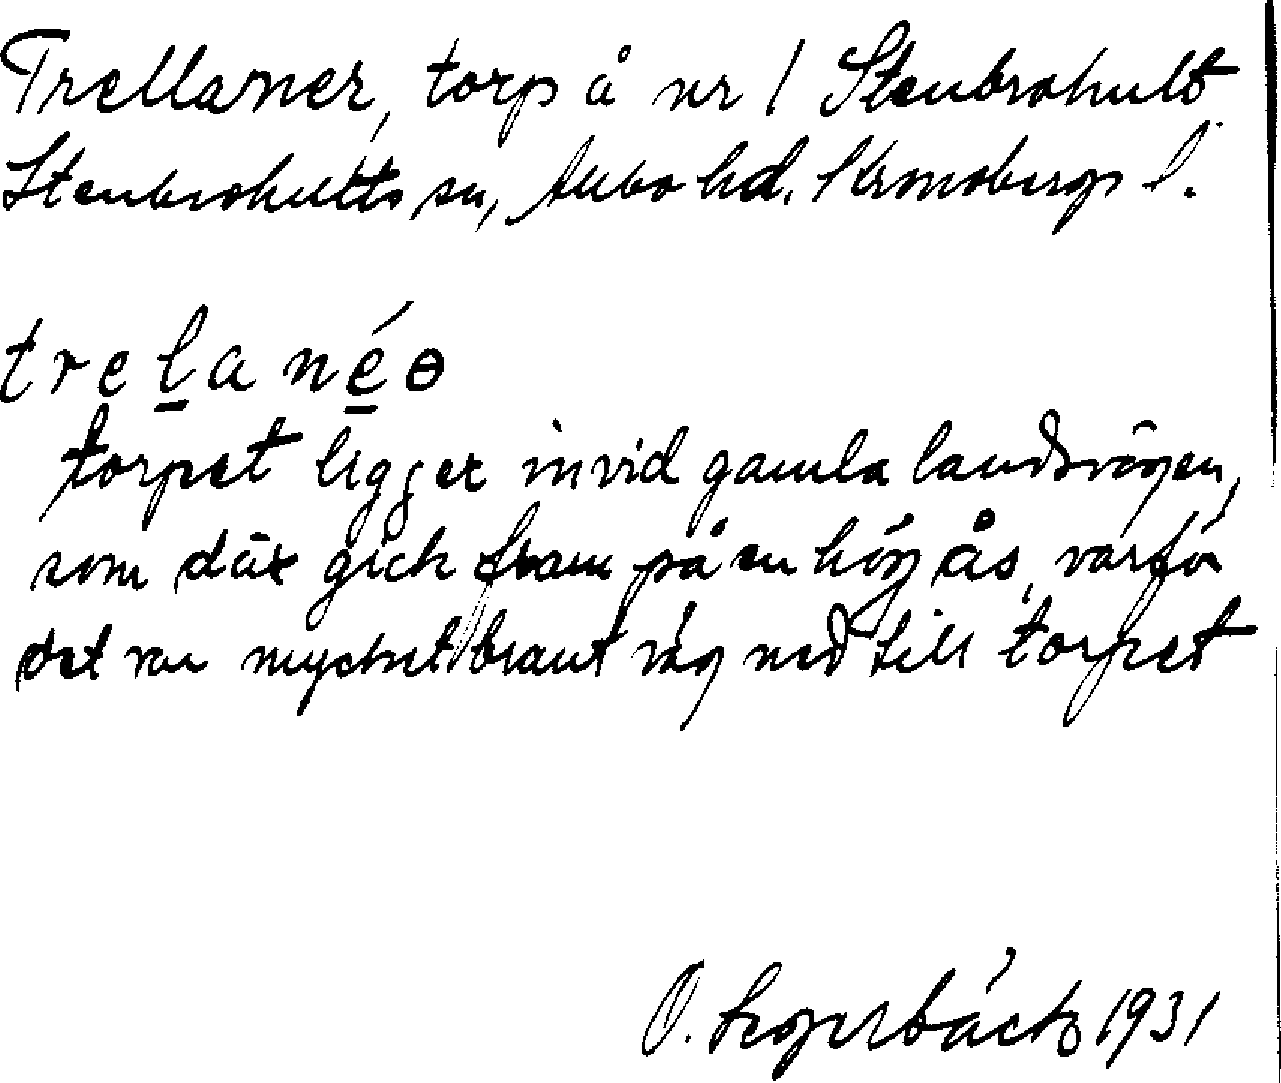 Trellaner, torp å nr 1 Stenbrohult
Stenbrohults sn, Allbo hd. Kronobergs l.
trelanéɵ
torpet ligger invid gamla landsvägen,
som där gick fram på en hög ås, varför
det var mycket brant väg ned till torpet
O. Segerbäck 1931